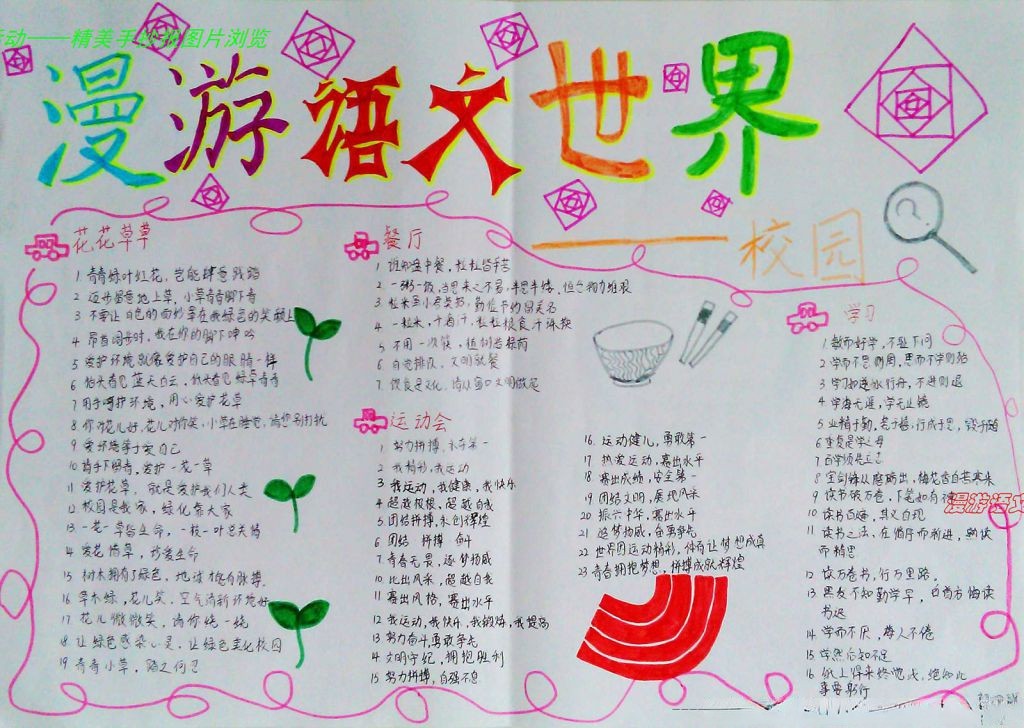 动——精美手抄报图片浏览
漫游语文世界
校园
花花草草
1 青青绿叶红花，岂能肆意践踏
2 迈步留意地上草，小草青青脚下青
3 不要让白色的面纱拿在我绿色的笑颜上
4 昂首阔步时，我在你的脚下呻吟
5 爱护环境就像爱护自己的眼睛一样
6 抬头看见蓝天白云，低头看见绿草青青
7 用手呵护环境，用心爱护花草
8 你对花儿好，花儿对你笑，小草在睡觉，请您别打扰
9 爱环境等于爱自己
10 请手下留青，爱护一花一草
11 爱护花草，就是爱护我们人类
12 校园是我家，绿化靠大家
13 一花一草皆生命，一枝一叶总关情
14 爱花惜草，珍爱生命
15 树木拥有了绿色，地球才能有脉搏.
16 草木绿，花儿笑，空气清新环境好
17 花儿微微笑，请你绕一绕
18 让绿色感染心灵，让绿色美化校园
19 青青小草，踏之何忍
餐厅
1 谁知盘中餐，粒粒皆辛苦
2 一粥一饭，当思来之不易，半思半缕，恒念物力维艰
4 一粒米，千滴汗，粒粒粮食汗珠换
6 自觉排队，文明就餐
运动会
1 努力拼搏，永夺第一
2 我精彩，我运动
3 我运动，我健康，我快乐
4 超越极限，超越自我
5 团结拼搏，永创辉煌
6 团结 拼搏 奋斗
7 青春无畏，逐梦扬威
10 比出风采，超越自我
11 赛出风格，赛出水平
12 我运动，我快乐，我锻炼，我提高
13 努力奋斗，勇敢争先
14 文明守纪，拥抱胜利
15 努力拼搏，自强不息
16. 运动健儿，勇敢第一
17 热爱运动，赛出水平
18 赛出成绩，安全第一
19 团结文明，展现风采
20 振六中华，赛出水平
21 追梦扬威，奋勇争先
22 世界因运动精彩，体育让梦想成真
23 青春拥抱梦想，拼搏成就辉煌
学习
1 敏而好学，不耻下问
2 学而不思则罔，思而不学则殆
3 学习如逆水行舟，不进则退
4 学海无涯，学无止境
5 业精于勤，荒于嬉，行成于思，毁于随
6 重复是学之母
7 自学须是立志
8 宝剑锋从磨砺出，梅花香自苦寒来
9 读书破万卷，下笔如有神
漫游语文
10 读书百遍，其义自现
11 读书之法，在循序而渐进，熟读
而精思
12 读万卷书，行万里路。
13 黑发不知勤学早，白首方悔读
书迟
14 学而不厌，诲人不倦
15 学然后知不足
16 纸上得来终觉浅，绝知此
事要躬行